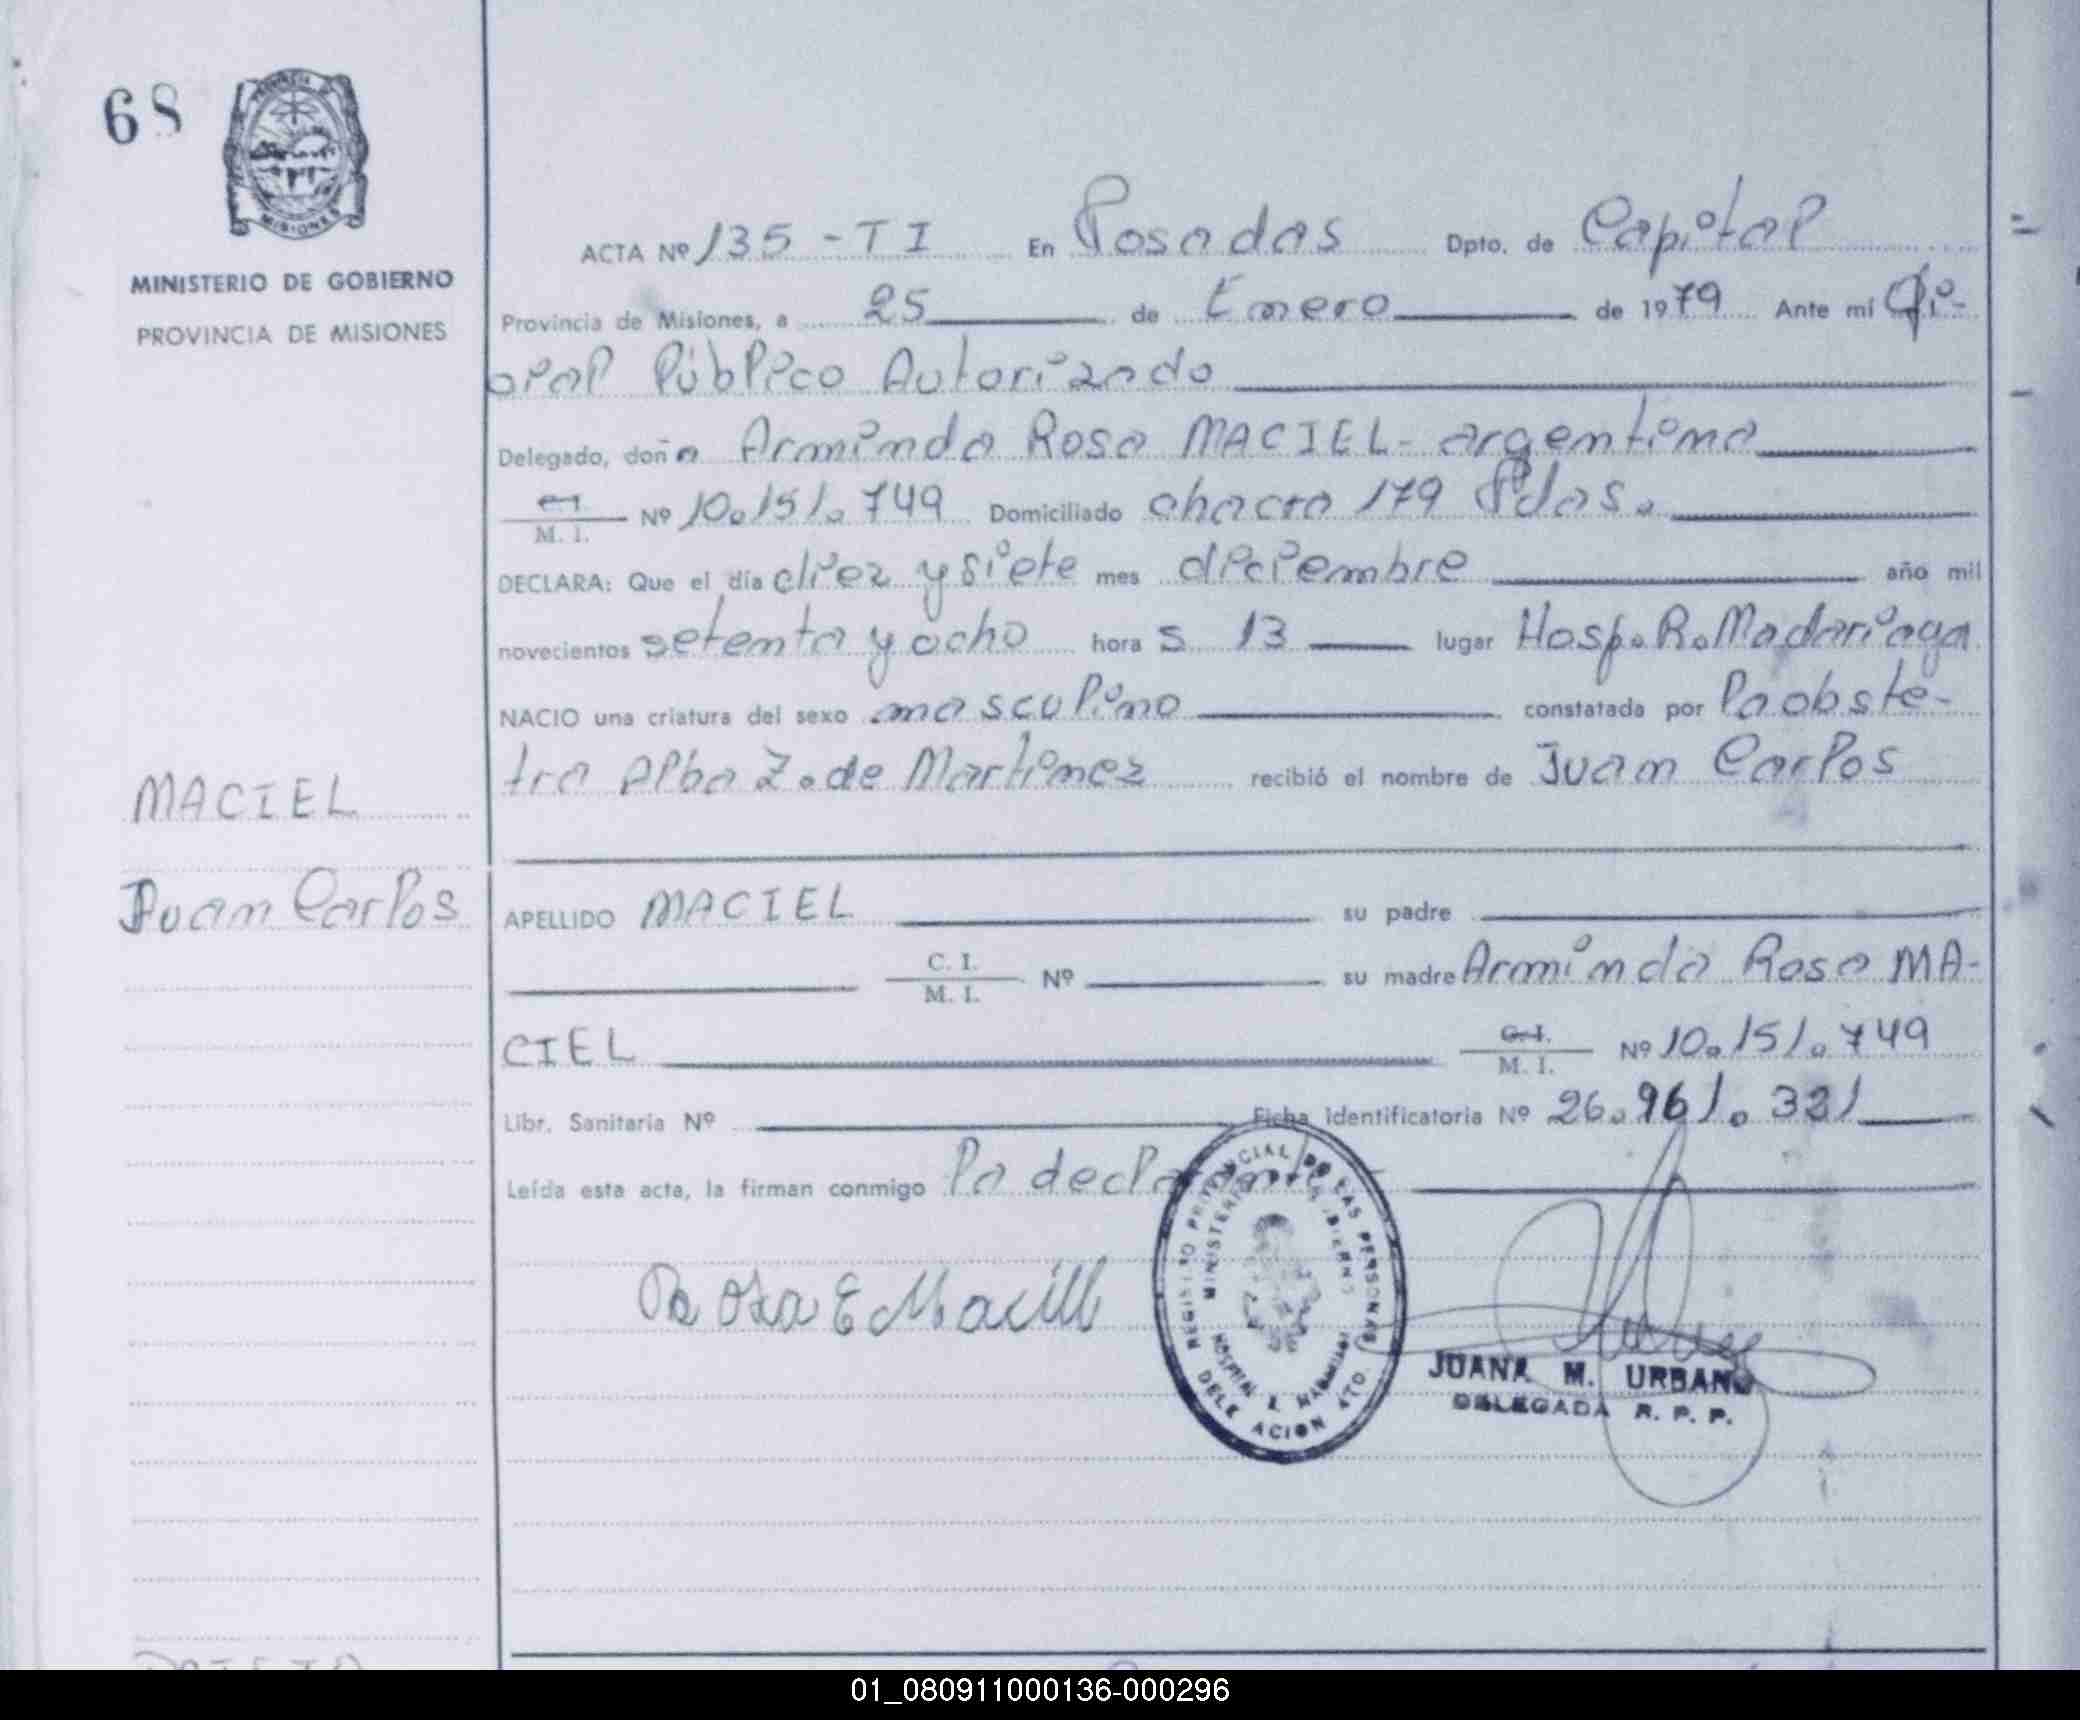 68
PROVINCIA
MISIONES
MINISTERIO DE GOBIERNO
PROVINCIA DE MISIONES
ACTA Nº 135 - T I En Posadas Dpto. de Capital
Provincia de Misiones, a 25 de Enero de 1979 Ante mi Ofi-
cial Público Autorizado
Delegado, doña Arminda Rosa MACIEL - argentina
C. I.
M. I. Nº 10.151.749 Domiciliado chacra 179 Pdas.
DECLARA: Que el día diez y siete mes diciembre año mil
novecientos setenta y ocho hora s 13 lugar Hosp. R. Madariaga
NACIO una criatura del sexo masculino constatada por la obste-
tra Alba Z. de Martinez recibió el nombre de Juan Carlos
MACIEL
Juan Carlos
APELLIDO MACIEL su padre
C. I.
M. I. Nº su madre Arminda Rosa MA-
CIEL C. I.
M. I. Nº 10.151.749
Libr. Sanitaria Nº Ficha Identificatoria Nº 26.961.321
Leída esta acta, la firman conmigo la declarante
Rosa E Maciel
REGISTRO PROVINCIAL DE LAS PERSONAS
MINISTERIO DE GOBIERNO
HOSPITAL R. MADARIAGA
DELEGACION 4TO.
JUANA M. URBANO
DELEGADA R. P. P.
01_080911000136-000296